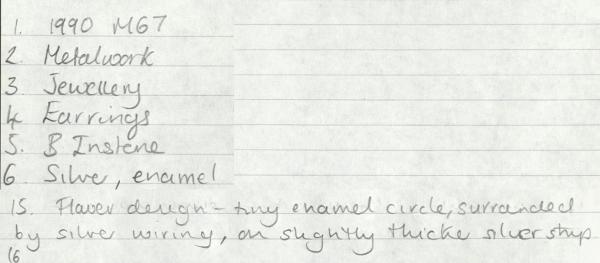 1. 1990 MG7
2. Metalwork
3 Jewellery
4 Earrings
5. B Instone
6 Silver, enamel
15. Flower design - tiny enamel circle, surrounded
by silver wiring, on slightly thicker silver strip
16